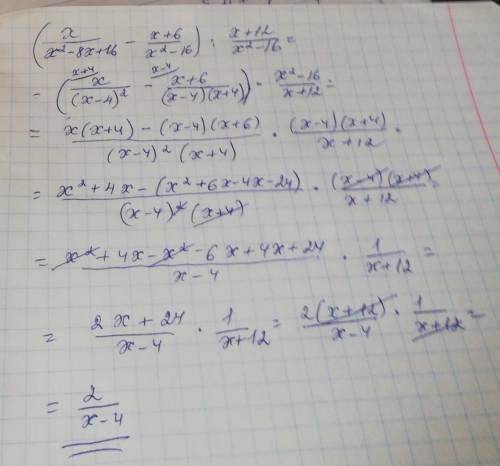 (x/(x²-8x+16) - (x+6)/(x²-16)) : (x+12)/(x²-16) =
= (x+4 x/(x-4)² - x-4 (x+6)/((x-4)(x+4))) · (x²-16)/(x+12) =
= (x(x+4) - (x-4)(x+6))/((x-4)²(x+4)) · ((x-4)(x+4))/(x+12) =
= (x²+4x-(x²+6x-4x-24))/((x-4)²(x+4)) · ((x-4)(x+4))/(x+12) =
= (x²+4x-x²-6x+4x+24)/(x-4) · 1/(x+12) =
= (2x+24)/(x-4) · 1/(x+12) = (2(x+12))/(x-4) · 1/(x+12) =
= 2/(x-4)